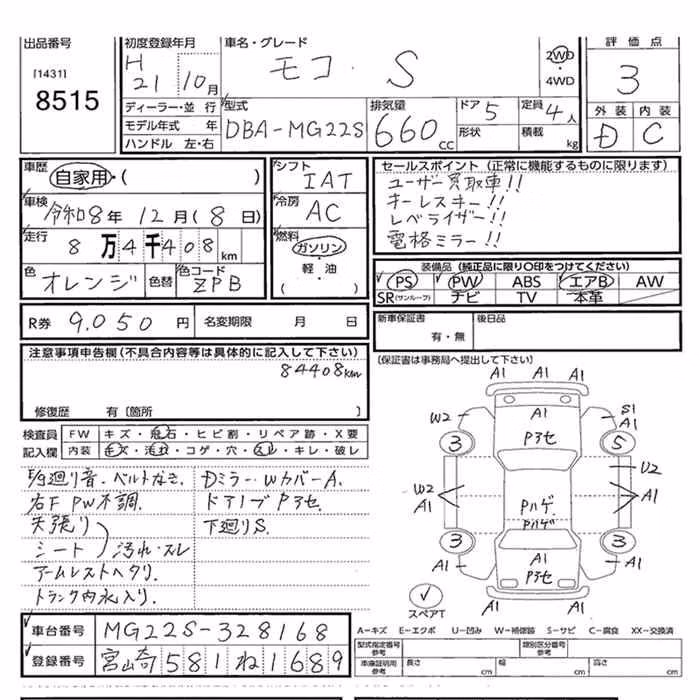 出品番号
[1431]
8515
初度登録年月
H 21 10月
車名・グレード
モコ・S
2WD
・
4WD
評価点
3
外装 内装
D C
ディーラー・並行
モデル年式 年
ハンドル 左・右
型式
DBA-MG22S
排気量
660 cc
ドア 5
形状
定員 4人
積載 kg
車歴
自家用・( )
車検
令和8年 12月(8日)
走行
8万4千408km
色
オレンジ
色替
色コード
ZPB
シフト
IAT
冷房
AC
燃料
ガソリン
・
軽・油
( )
セールスポイント(正常に機能するものに限ります)
ユーザー買取車!!
キーレスキー!!
レベライザー!!
電格ミラー!!
装備品(純正品に限り○印をつけてください)
PS PW ABS エアB AW
SR(サンルーフ) ナビ TV 本革
R券 9,050円 名変期限 月 日
新車保証書
有・無
後日品
(保証書は事務局へ提出して下さい)
注意事項申告欄(不具合内容等は具体的に記入して下さい)
84408km
修復歴 有〔箇所 〕
検査員
記入欄
FW キズ・飛石・ヒビ割・リペア跡・X要
内装 キズ・汚れ・コゲ・穴・スレ・キレ・破レ
E/g廻り音・ベルトなき.
右F PW不調.
天張り
シート
汚れ・スレ
アームレストヘタリ.
トランク内水入り.
DミラーWカバーA.
ドアノブPアセ.
下廻りS.
A1 A1 A1
W2 A1 A1 S1 A1
Pアセ
3 5
U2
W2 A1 A1
Pハゲ
Pハゲ
3 3
A1 A1 A1
Pアセ
スペアT
A-キズ E-エクボ U-凹み W-補修跡 S-サビ C-腐食 XX-交換済
車台番号 MG22S-328168
登録番号 宮崎581ね1689
型式指定番号
参考
類別区分番号
参考
車庫証明用
参考
長さ cm 幅 cm 高さ cm